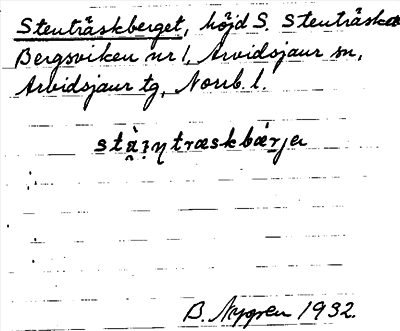 Stenträskberget, höjd S. Stenträsket
Bergsviken nr 1, Arvidsjaur sn,
Arvidsjaur tg, Norrb. l.
stằi̯ṇtræskbærja
B. Nygren 1932.